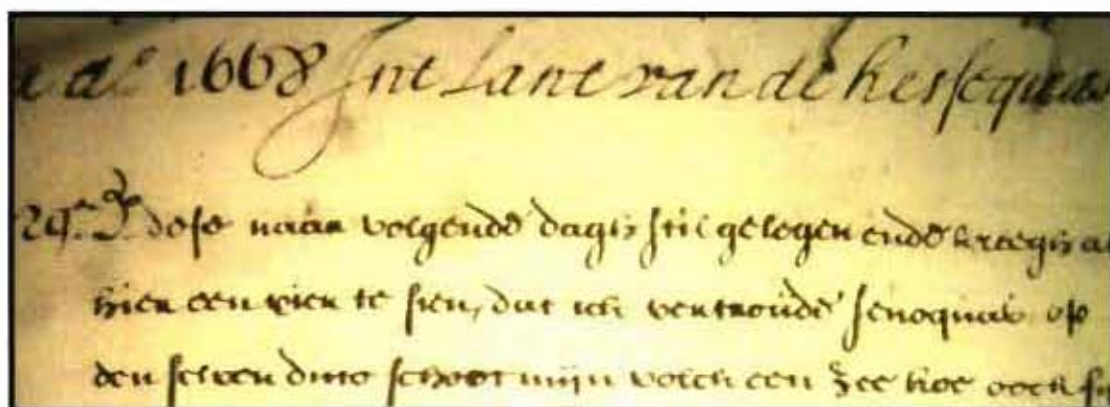 a a.o 1668 Int Lant van de hessequas
24.n d.o dese naar volgende dagh stil gelegen ende kreegh a
hier een vier te sien, dat ick vertroude senoquas op
den selven ditto schoot mijn volck een Zee koe oock s